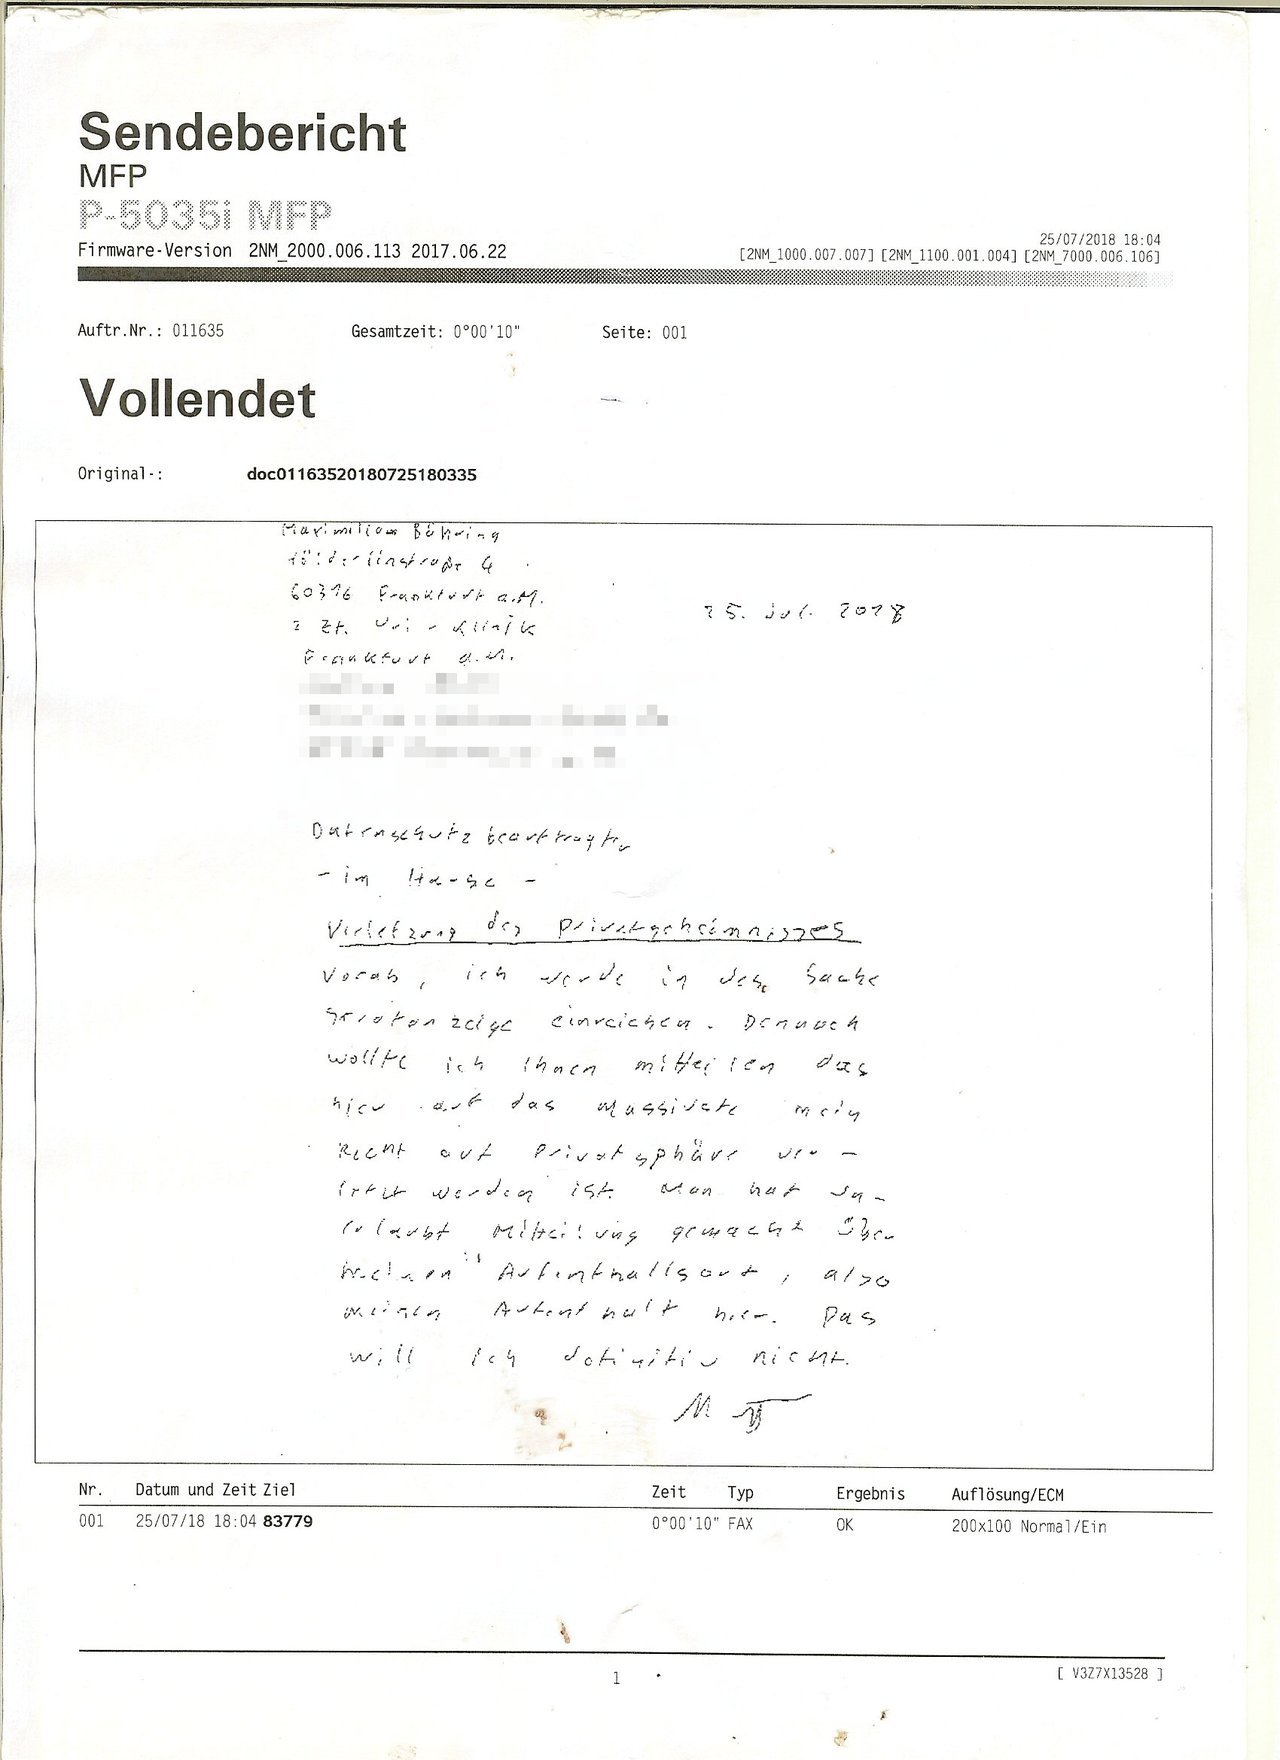 Sendebericht
MFP
P-5035i MFP
Firmware-Version 2NM_2000.006.113 2017.06.22
25/07/2018 18:04
[2NM_1000.007.007] [2NM_1100.001.004] [2NM_7000.006.106]
Auftr.Nr.: 011635 Gesamtzeit: 0°00'10" Seite: 001
Vollendet
Original-: doc01163520180725180335
Maximilian Bühring
Hölderlinstraße 4
60316 Frankfurt a.M.
25. Juli 2018
z Zt. Uni-Klinik
Frankfurt a.M.
Datenschutzbeauftragte
- im Hause -
Verletzung des Privatgeheimnisses
Vorab, ich werde in der Sache
Strafanzeige einreichen. Dennoch
wollte ich Ihnen mitteilen das
hier auf das Massivste mein
Recht auf Privatsphäre ver-
letzt worden ist. Man hat un-
erlaubt Mitteilung gemacht über
meinen Aufenthaltsort, also
meinen Aufenthalt hier. Das
will ich definitiv nicht.
Nr. Datum und Zeit Ziel Zeit Typ Ergebnis Auflösung/ECM
001 25/07/18 18:04 83779 0°00'10" FAX OK 200x100 Normal/Ein
1
[ V3Z7X13528 ]